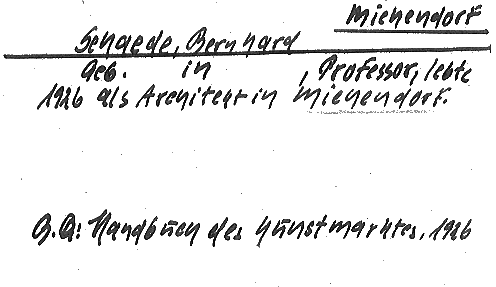 Michendorf
Schaede, Bernhard
Geb. in , Professor, lebte
1926 als Architekt in Michendorf.
B.Q: Handbuch des Kunstmarktes, 1926